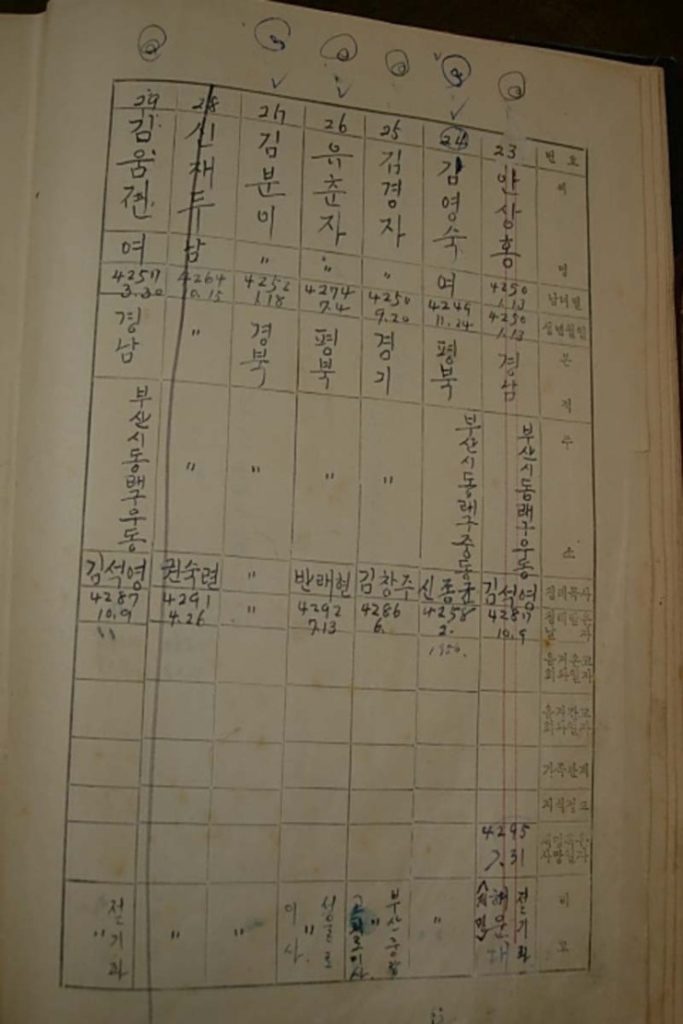 번호
씨
명
남녀별
생년월일
본
적
주
소
침례목사
침례받은
날자
옮겨온교
회와일자
옮겨간교
회와일자
가족관계
직식정도
사망일자
비
고
23
안상홍
4250
1.13
4250
1.13
경남
부산시동래구우동
김석영
4287
10.9
4295
7.31
해운대
24
김영숙
여
4249
11.24
평북
부산시동래구중동
신종균
4258
2.
1956.
"
25
김경자
"
4250
9.20
경기
"
김창주
4286
6.
부산중앙
"
26
유춘자
"
4274
7.4
평북
"
반래현
4292
7.13
서울로
이사
27
김분이
"
4252
1.18
경북
"
"
"
"
28
신재두
남
4264
10.15
"
"
권숙련
4291
4.26
"
29
김움전
여
4257
3.30
경남
부산시동래구우동
김석영
4287
10.9
"
"